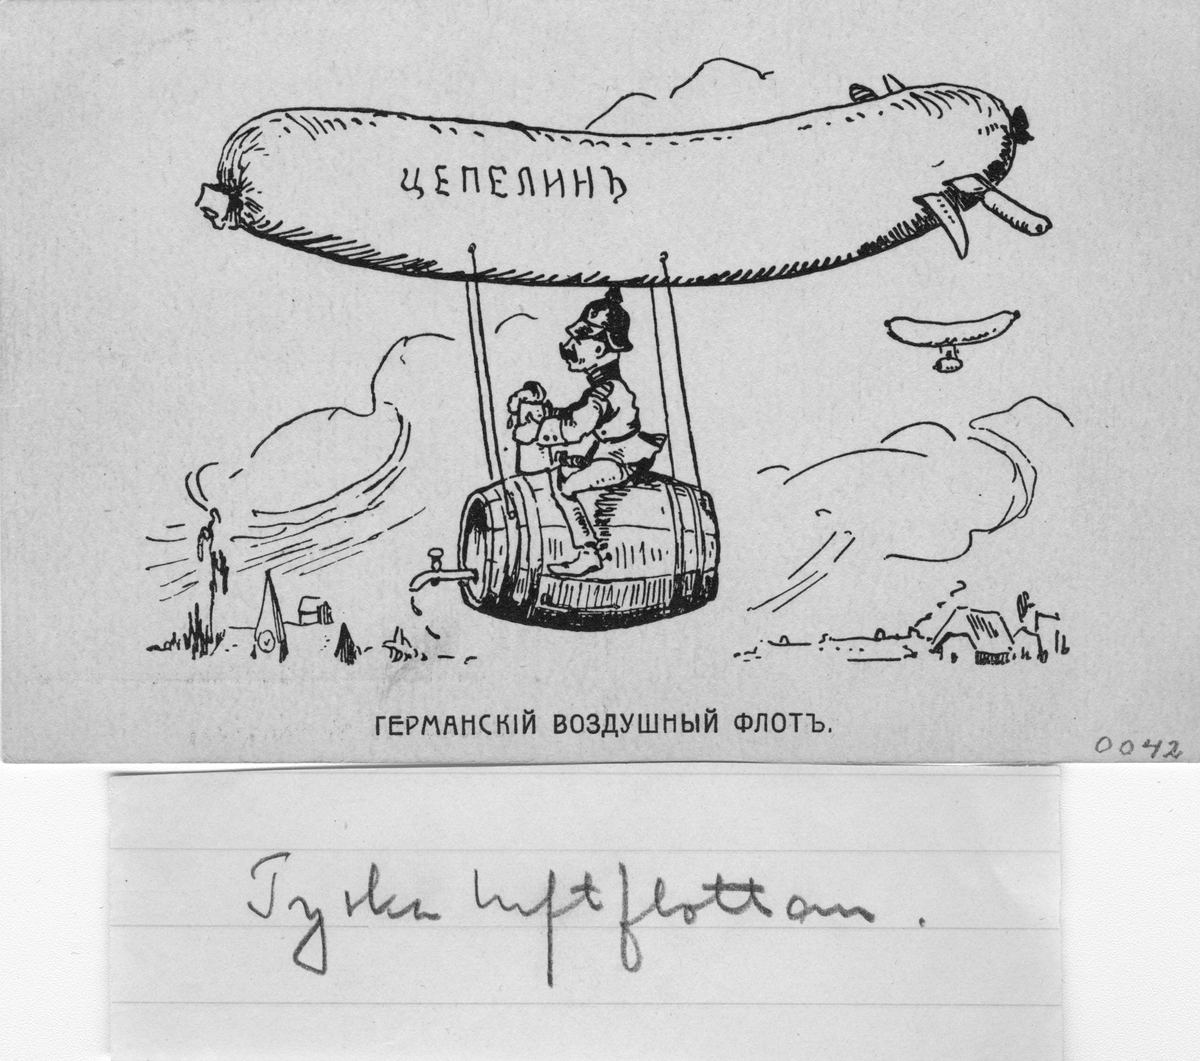 ЦЕПЕЛИНЪ
ГЕРМАНСКІЙ ВОЗДУШНЫЙ ФЛОТЪ.
0042
Tyska luftflottan.